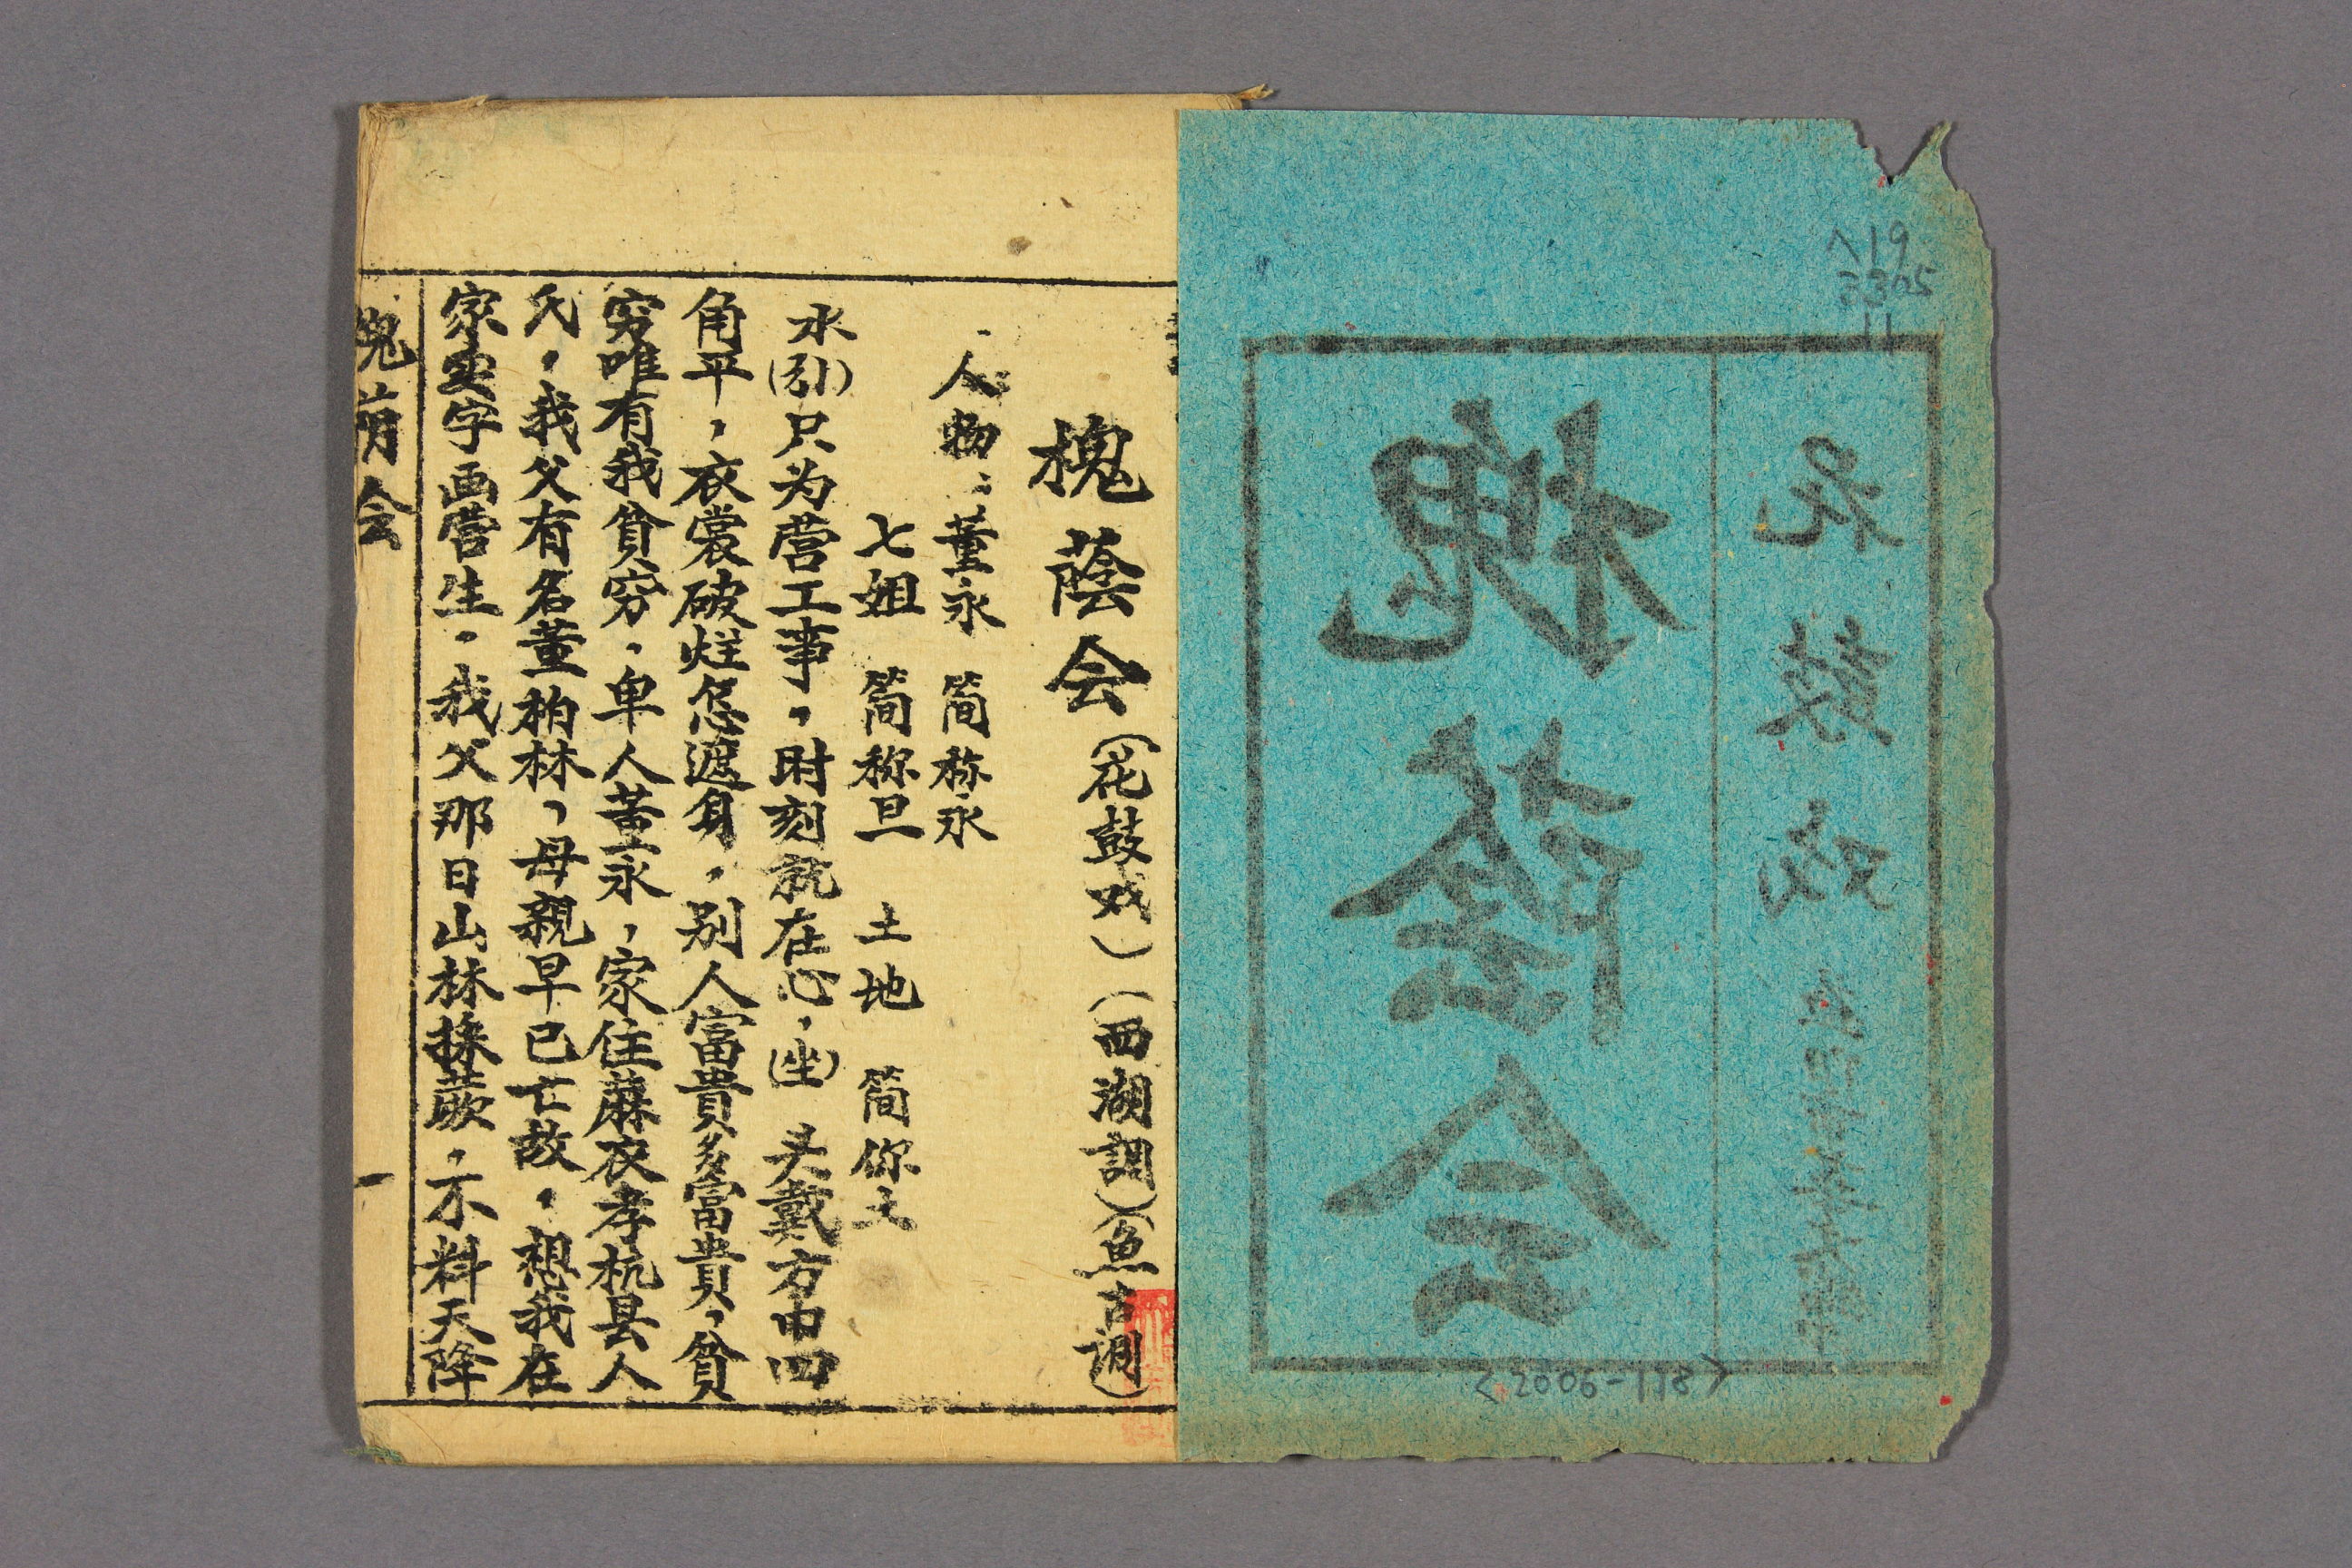 花鼓戏
槐蔭会
∧19
3305
11
<2006-118>
槐蔭会(花鼓戏)(西湖調)(魚古調)
人物：董永 简称永
七姐 简称旦 土地 简称土
永(引)只为营工事，时刻就在心，(坐)头戴方巾四
角平，衣裳破烂怎遮身，别人富貴多富貴，貧
穷唯有我貧穷，卑人董永，家住蔴衣孝杭县人
氏，我父有名董柏林，母親早已亡故，想我在
家卖字画营生，我父那日山林採蕨，不料天降
槐蔭会
一